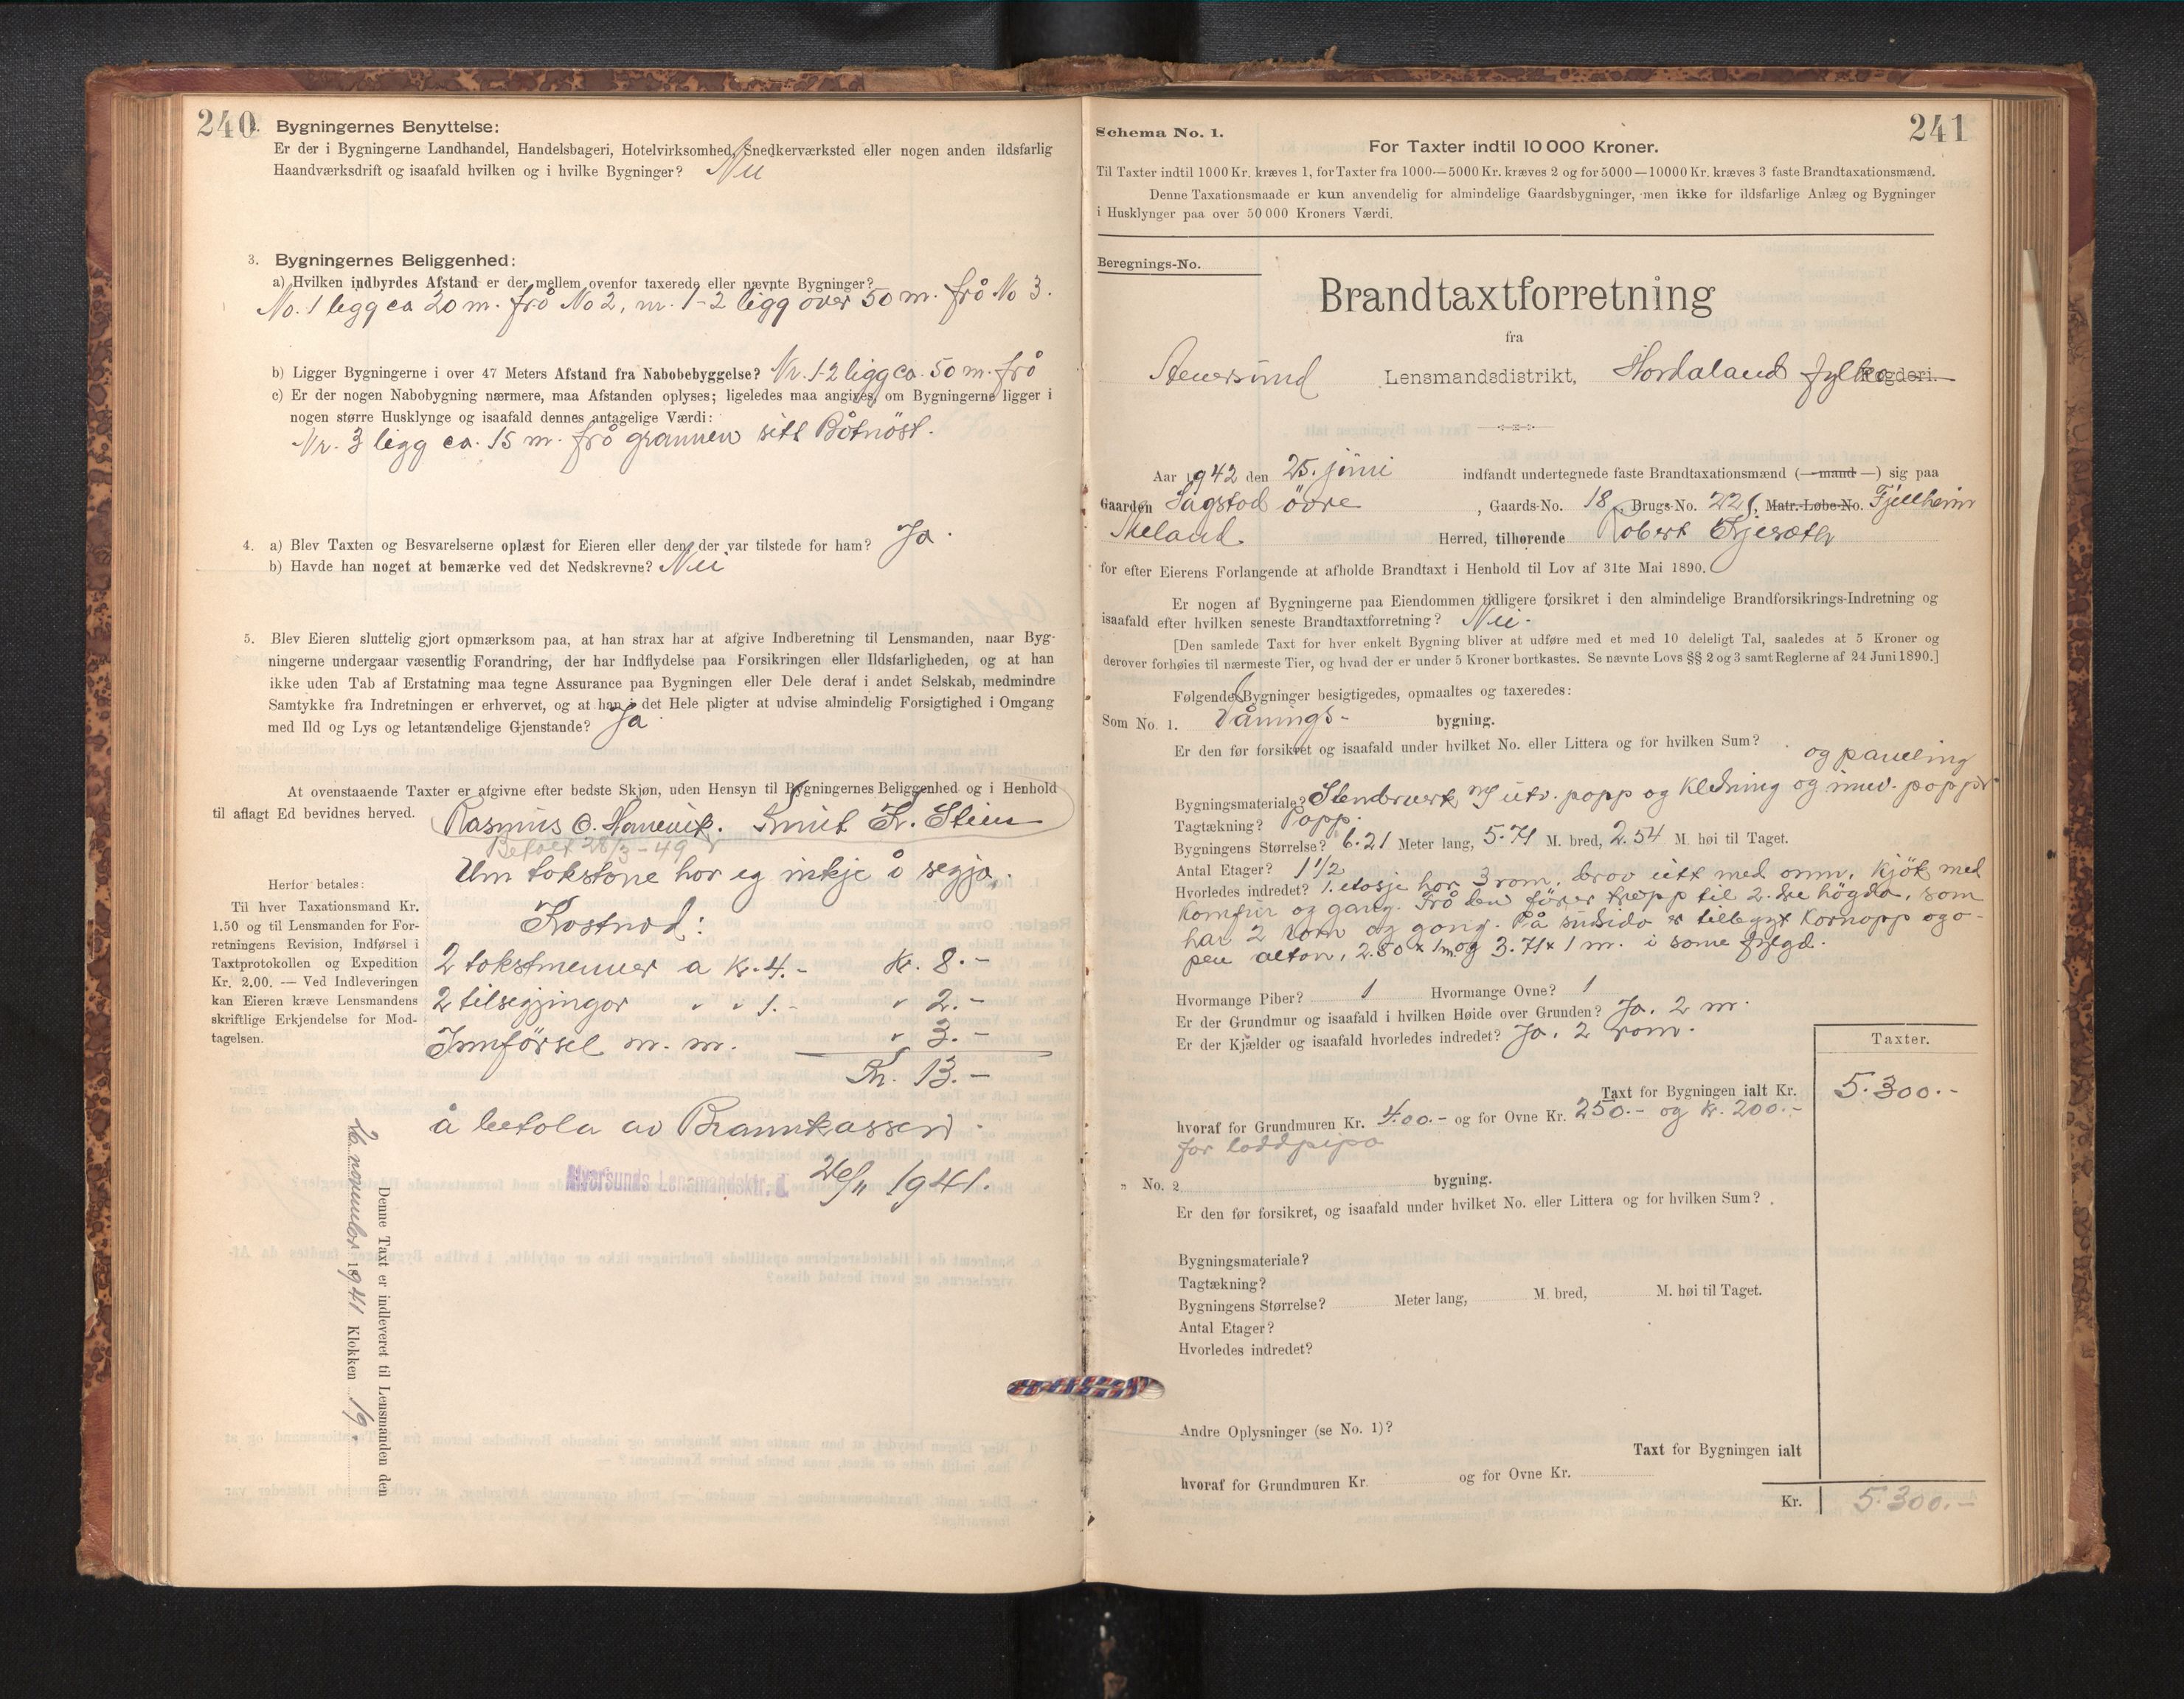 240.
Bygningernes Benyttelse:
Er der i Bygningerne Landhandel, Handelsbageri, Hotelvirksomhed, Snedkerværksted eller nogen anden ildsfarlig
Haandværksdrift og isaafald hvilken og i hvilke Bygninger? Nei
3. Bygningernes Beliggenhed:
a) Hvilken indbyrdes Afstand er der mellem ovenfor taxerede eller nævnte Bygninger?
No. 1 ligg ca 20 m. frå No 2, nr. 1-2 ligg over 50 m. frå No 3.
b) Ligger Bygningerne i over 47 Meters Afstand fra Nabobebyggelse? Nr. 1-2 ligg ca. 50 m. frå
c) Er der nogen Nabobygning nærmere, maa Afstanden oplyses; ligeledes maa angives, om Bygningerne ligger i
nogen større Husklynge og isaafald dennes antagelige Værdi:
Nr. 3 ligg ca. 15 m. frå grannen sitt Båtnöst.
4. a) Blev Taxten og Besvarelserne oplæst for Eieren eller den, der var tilstede for ham? Ja.
b) Havde han noget at bemærke ved det Nedskrevne? Nei
5. Blev Eieren sluttelig gjort opmærksom paa, at han strax har at afgive Indberetning til Lensmanden, naar Byg-
ningerne undergaar væsentlig Forandring, der har Indflydelse paa Forsikringen eller Ildsfarligheden, og at han
ikke uden Tab af Erstatning maa tegne Assurance paa Bygningen eller Dele deraf i andet Selskab, medmindre
Samtykke fra Indretningen er erhvervet, og at han i det Hele pligter at udvise almindelig Forsigtighed i Omgang
med Ild og Lys og letantændelige Gjenstande? Ja
At ovenstaaende Taxter er afgivne efter bedste Skjøn, uden Hensyn til Bygningernes Beliggenhed og i Henhold
til aflagt Ed bevidnes herved. Rasmus O. Stein
Betalt 28/3-49
Um takstane har eg inkje å segja.
Herfor betales:
Til hver Taxationsmand Kr.
1.50 og til Lensmanden for For-
retningens Revision, Indførsel i
Taxtprotokollen og Expedition
Kr. 2.00. — Ved Indleveringen
kan Eieren kræve Lensmandens
skriftlige Erkjendelse for Mod-
tagelsen.
Kostnad:
2 takstmenner a Kr. 4.- Kr. 8.-
2 tilsegjingar " " 1.- " 2.-
Innförsel m. m. " 3.-
Kr. 13.-
å betala av Brannkassen.
Alversunds Lensmandsktr. d. 26/11 1941.
Denne Taxt er indleveret til Lensmanden den
26. november 1941 Klokken 19.
241
Schema No. 1.
For Taxter indtil 10 000 Kroner.
Til Taxter indtil 1000 Kr. kræves 1, for Taxter fra 1000—5000 Kr. kræves 2 og for 5000—10000 Kr. kræves 3 faste Brandtaxationsmænd.
Denne Taxationsmaade er kun anvendelig for almindelige Gaardsbygninger, men ikke for ildsfarlige Anlæg og Bygninger
i Husklynger paa over 50 000 Kroners Værdi.
Beregnings-No.
Brandtaxtforretning
fra
Alversund Lensmandsdistrikt, Hordaland fylke Fogderi.
Aar 1942 den 25. juni indfandt undertegnede faste Brandtaxationsmænd (—mand—) sig paa
Gaarden Sagstad övre, Gaards-No. 18, Brugs-No. 221, Matr.-Løbe-No. Fjellheim
Meland Herred, tilhørende Robert
for efter Eierens Forlangende at afholde Brandtaxt i Henhold til Lov af 31te Mai 1890.
Er nogen af Bygningerne paa Eiendommen tidligere forsikret i den almindelige Brandforsikrings-Indretning og
isaafald efter hvilken seneste Brandtaxtforretning? Nei.
[Den samlede Taxt for hver enkelt Bygning bliver at udføre med et med 10 deleligt Tal, saaledes at 5 Kroner og
derover forhøies til nærmeste Tier, og hvad der er under 5 Kroner bortkastes. Se nævnte Lovs §§ 2 og 3 samt Reglerne af 24 Juni 1890.]
Følgende Bygninger besigtigedes, opmaaltes og taxeredes:
Som No. 1. Vånings- bygning.
Er den før forsikret og isaafald under hvilket No. eller Littera og for hvilken Sum?
og paneling
Bygningsmateriale? Stenderverk m/ utv. papp og kledning og innv. papp
Tagtækning? Papp.
Bygningens Størrelse? 6.21 Meter lang, 5.71 M. bred, 2.54 M. høi til Taget.
Antal Etager? 1 1/2
Hvorledes indredet? 1. etasje har 3 rom, derav eitt med omn, kjök med
komfur og gang. Frå den förer trapp til 2. dre högda, som
har 2 rom og gang. På sudsida er tilbygt Karnapp og o-
pen altan, 2.80 x 1 m. og 3.71 x 1 m. i same fylgd.
Hvormange Piber? 1 Hvormange Ovne? 1
Er der Grundmur og isaafald i hvilken Høide over Grunden? Ja. 2 m.
Er der Kjælder og isaafald hvorledes indredet? Ja. 2 rom.
Taxter.
Taxt for Bygningen ialt Kr. 5.300.-
hvoraf for Grundmuren Kr. 400.- og for Ovne Kr. 250.- og kr. 200.-
for loddpipa
" No. 2 bygning.
Er den før forsikret, og isaafald under hvilket No. eller Littera og for hvilken Sum?
Bygningsmateriale?
Tagtækning?
Bygningens Størrelse? Meter lang, M. bred, M. høi til Taget.
Antal Etager?
Hvorledes indredet?
Andre Oplysninger (se No. 1)?
Taxt for Bygningen ialt
hvoraf for Grundmuren Kr. og for Ovne Kr.
Kr. 5.300.-